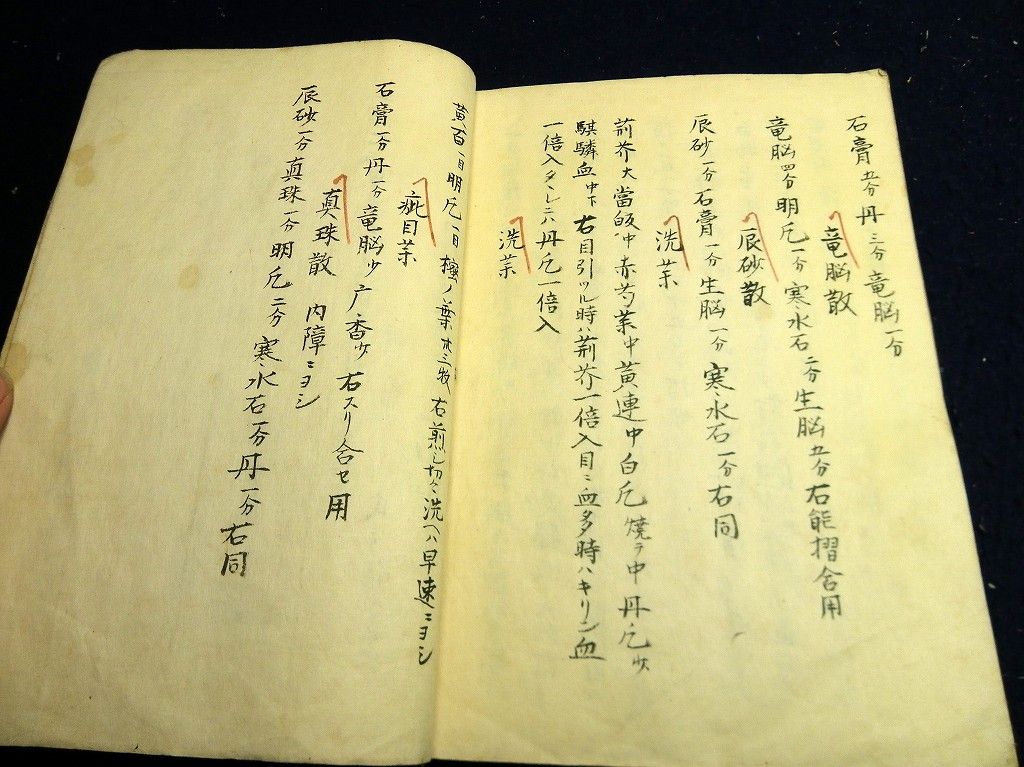 石膏五分丹三分竜脳一分
竜脳散
竜脳四分明礬一分寒水石二分生脳五分右能摺合用
辰砂散
辰砂一分石膏一分生脳一分寒水石一分右同
洗薬
荊芥大當皈中赤芍薬中黄連中白礬焼テ中丹礬少
騏驎血中下右目引ツル時ハ荊芥一倍入目ニ血多時ハキリン血
一倍入タヽレニハ丹礬一倍入
洗薬
黄百一目明礬一目 ノ葉廿三牧右煎シ切々洗ヘハ早速ニヨシ
疵目薬
石膏一分丹一分竜脳少 香少右スリ合セ用
真珠散 内障ニヨシ
辰砂一分真珠一分明礬二分寒水石一分丹一分右同